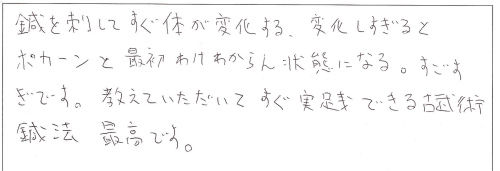 鍼を刺してすぐ体が変化する、変化しすぎると
ポカーンと最初わけわからん状態になる。すごす
ぎです。教えていただいてすぐ実践できる古武術
鍼法 最高です。